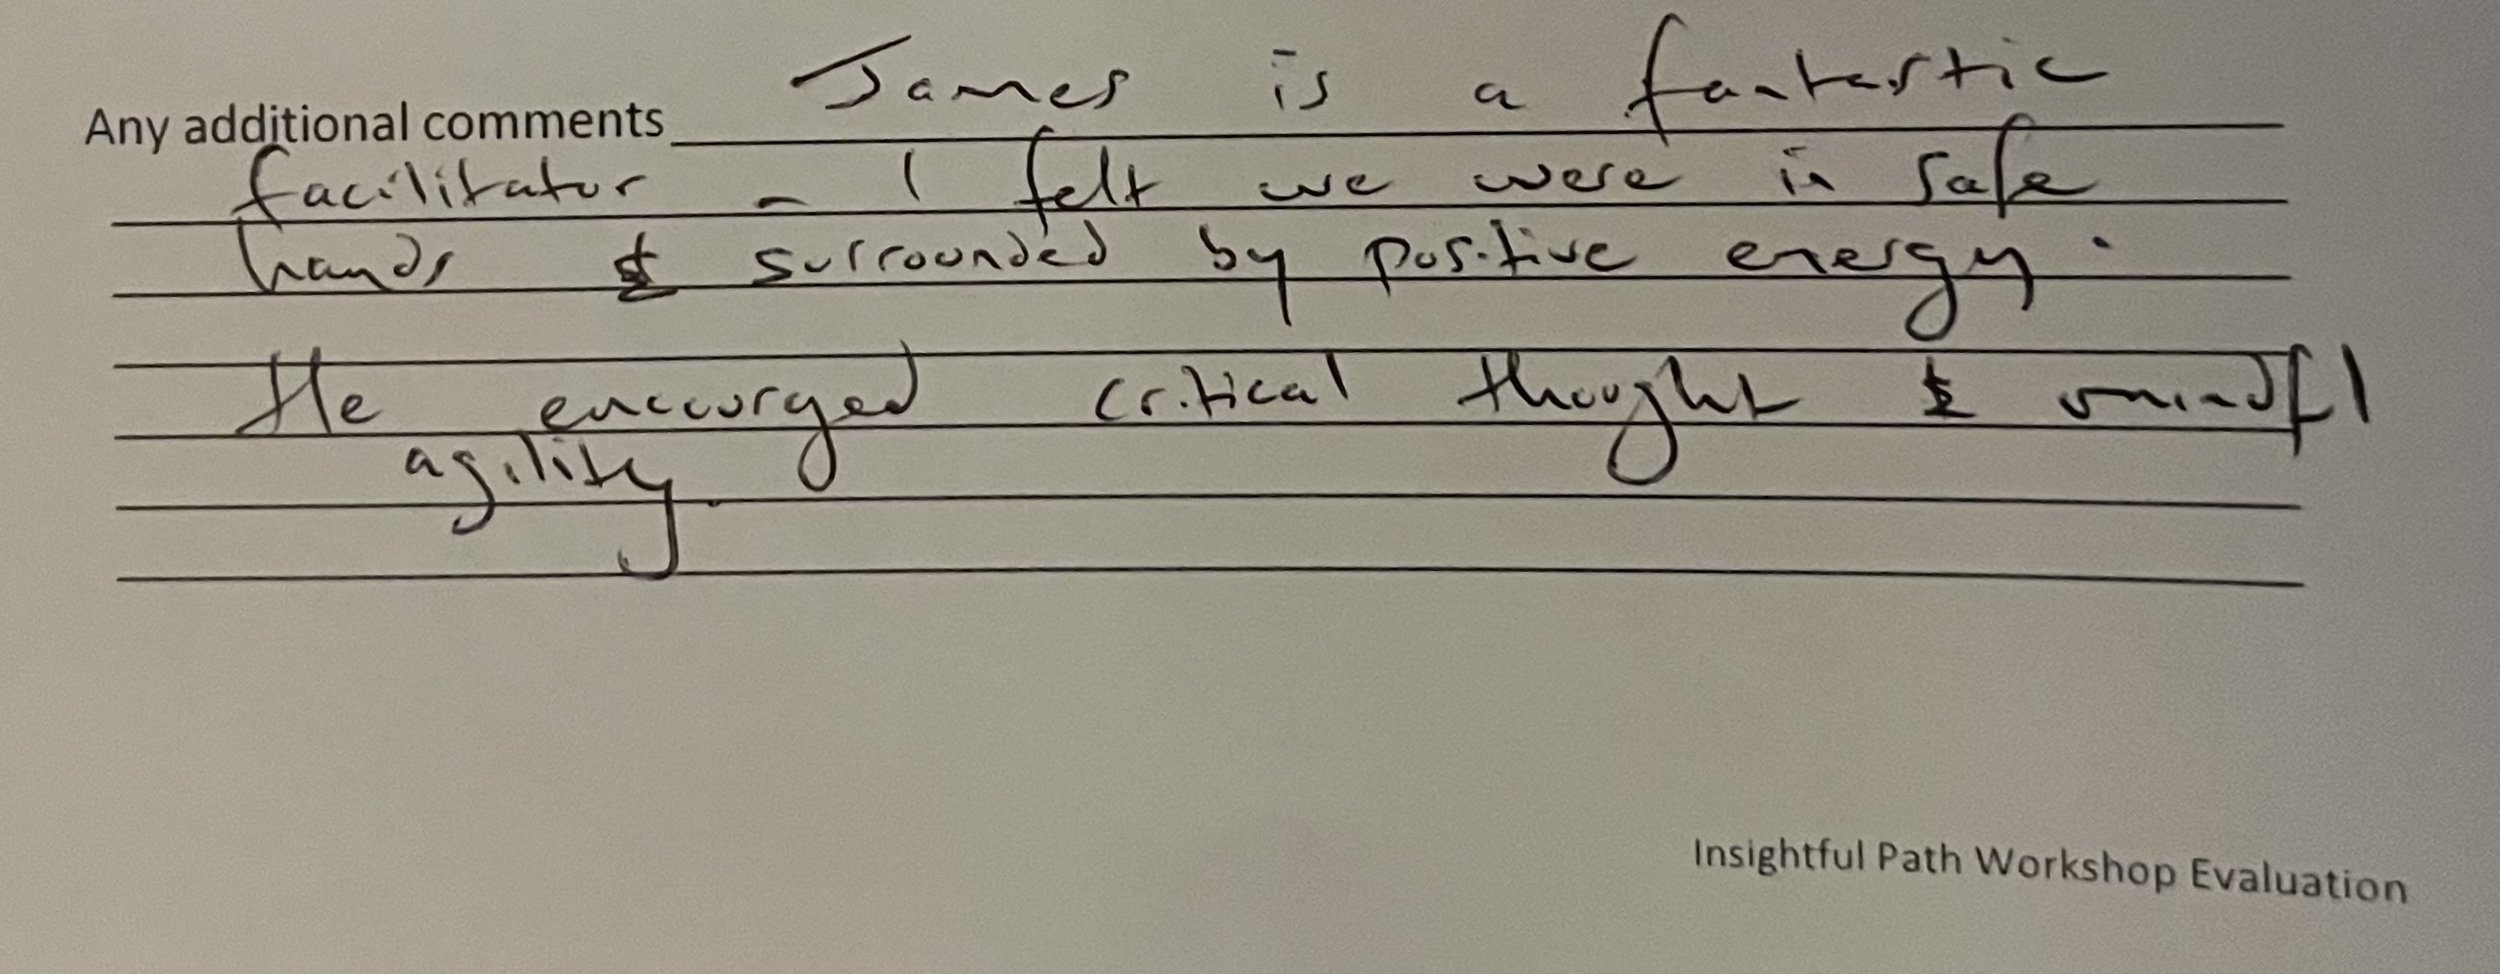 Any additional comments James is a fantastic
facilitator - I felt we were in safe
hands & surrounded by positive energy.
He encourged critical thought & mindfl
agility.
Insightful Path Workshop Evaluation